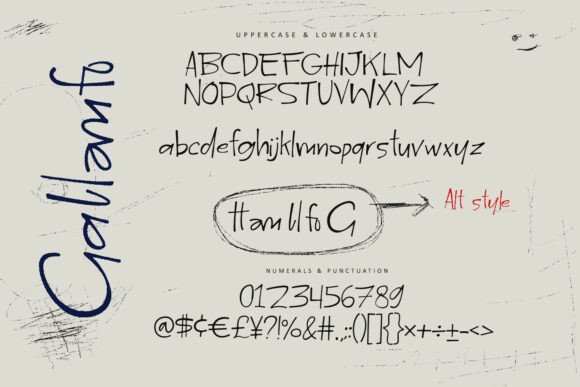 Gallamfo
UPPERCASE & LOWERCASE
ABCDEFGHIJKLM
NOPQRSTUVWXYZ
abcdefghijklmnopqrstuvwxyz
HamllfoG
Alt style
NUMERALS & PUNCTUATION
0123456789
@$¢€£¥?!%&#.,:()[]{}×+÷±-<>